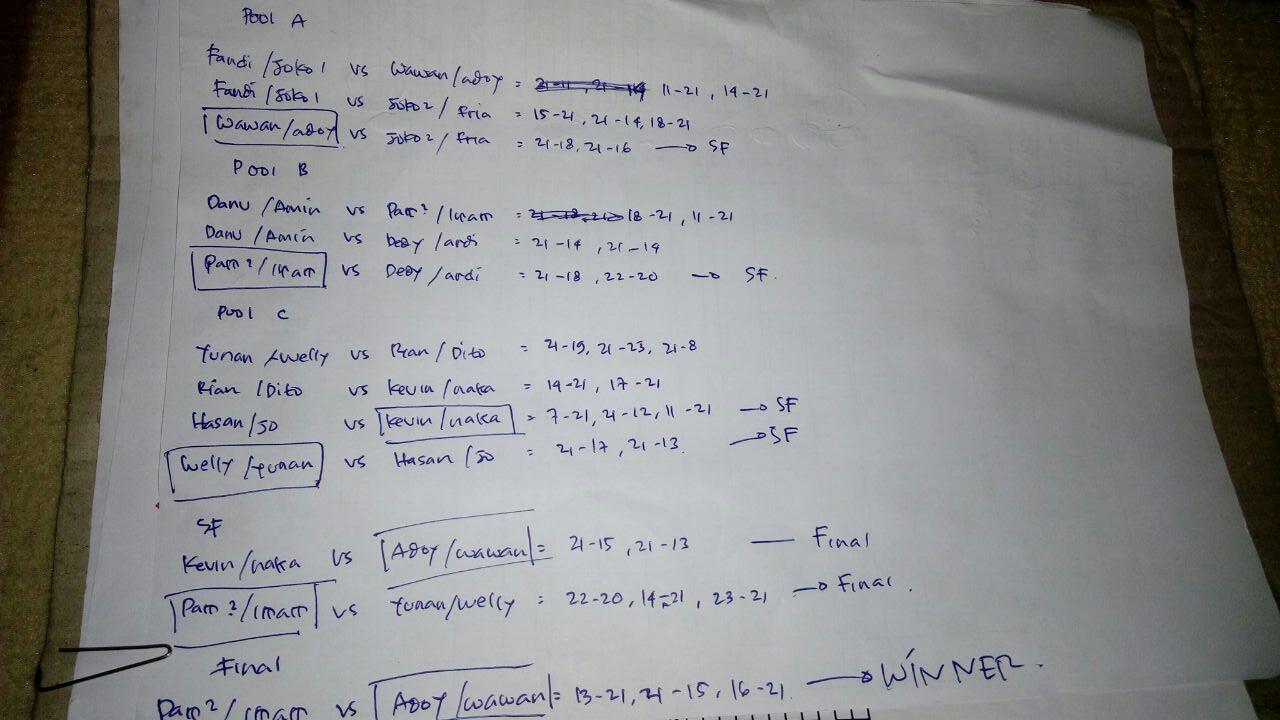 POOL A
Fandi / Joko 1 vs Wawan/adoy = 21-11, 21-14 11-21, 14-21
Fandi / Joko 1 vs Joko 2 / fria = 15-21, 21-14, 18-21
Wawan/adoy vs Joko 2 / fria = 21-18, 21-16 → SF
POOL B
Danu / Amin vs Pam² / Imam = 18-21, 11-21
Danu / Amin vs Dedy / ardi = 21-14, 21-19
Pam² / Imam vs Dedy / ardi = 21-18, 22-20 → SF.
POOL C
Yunan / welly vs Rian / Dito = 21-19, 21-23, 21-8
Rian / Dito vs kevin / naka = 14-21, 17-21
Hasan / Jo vs kevin / naka = 7-21, 21-12, 11-21 → SF
Welly / Yunan vs Hasan / Jo = 21-17, 21-13. → SF
SF
Kevin/naka vs Adoy / wawan = 21-15, 21-13 — Final
Pam² / Imam vs Yunan/welly = 22-20, 14-21, 23-21 → Final.
Final
Pam² / Imam vs Adoy / wawan = 13-21, 21-15, 16-21. → WINNER.